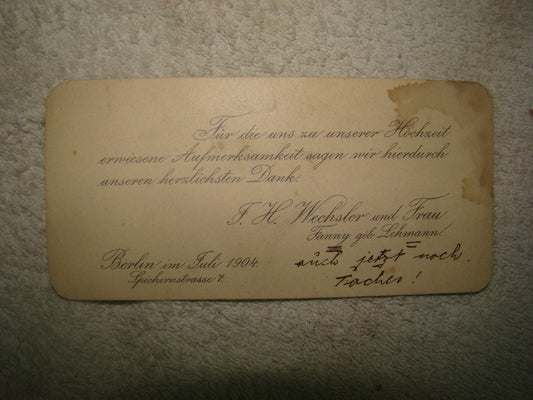 Für die uns zu unserer Hochzeit
erwiesene Aufmerksamkeit sagen wir hierdurch
unseren herzlichsten Dank.
F. H. Wechsler und Frau
Fanny geb. Lehmann.
Berlin im Juli 1904.
Spichernstrasse 7.
auch jetzt noch.